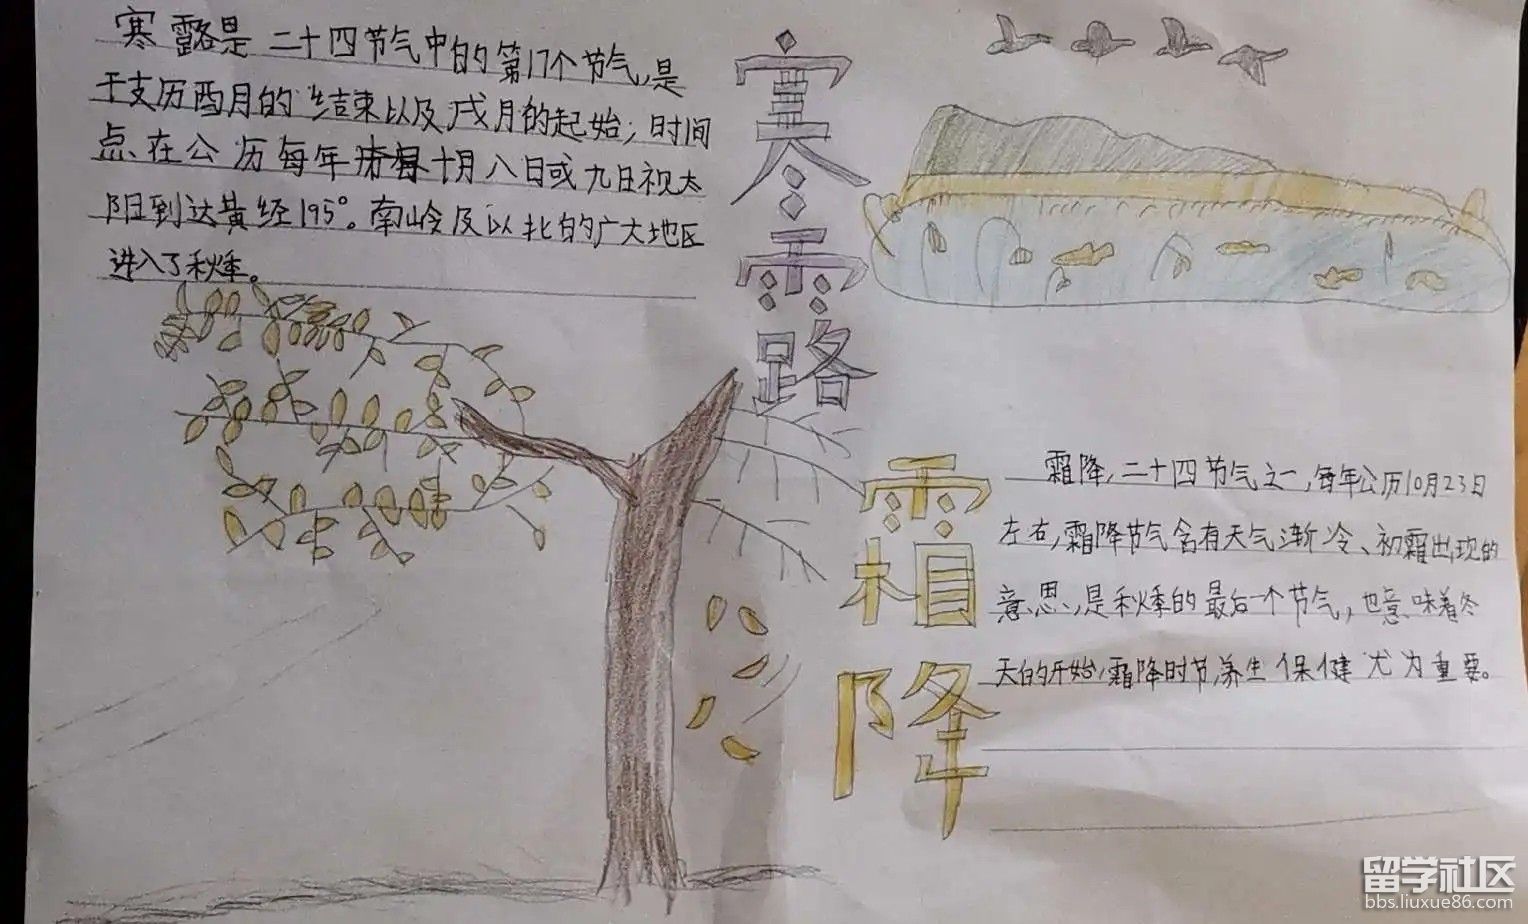 寒露是二十四节气中的第17个节气,是
干支历酉月的结束以及戌月的起始;时间
点在公历每年十月八日或九日视太
阳到达黄经195°。南岭及以北的广大地区
进入了秋季。
寒露
霜降
霜降,二十四节气之一,每年公历10月23日
左右,霜降节气含有天气渐冷、初霜出现的
意思,是秋季的最后一个节气,也意味着冬
天的开始,霜降时节,养生保健尤为重要。
留学社区
bbs.liuxue86.com